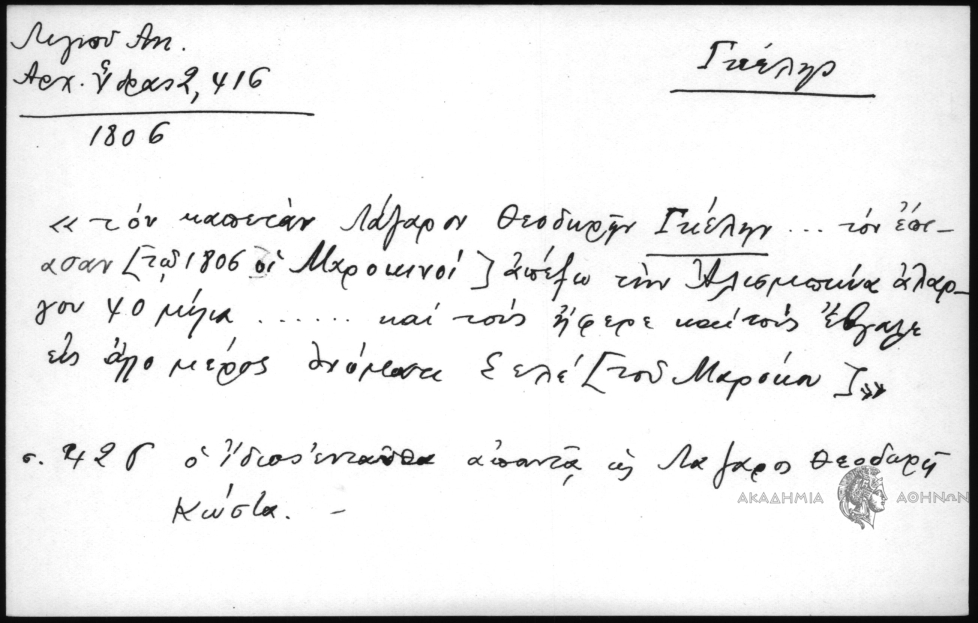 Λιγνοῦ Αντ.
Αρχ. Ὕδρας 2, 416
1806
Γκέλης
«τόν καπετάν Λάζαρον Θεοδωρῆν Γκέλην ... τόν ἔπι-
ασαν [τῷ 1806 οἱ Μαροκινοί] ἀπέξω τήν Ἀλισμπώνα ἀλαρ-
γον 40 μίγια ...... καί τούς ἤφερε καί τούς ἔβγαλε
εἰς ἄλλο μέρος ὀνόματι Σελέ [τοῦ Μαρόκου]»
σ. 426 ὁ ἴδιος ἐνταῦθα ἀπαντᾷ ὡς Λάζαρος Θεοδωρῆ
Κώστα. -
ΑΚΑΔΗΜΙΑ ΑΘΗΝΩΝ